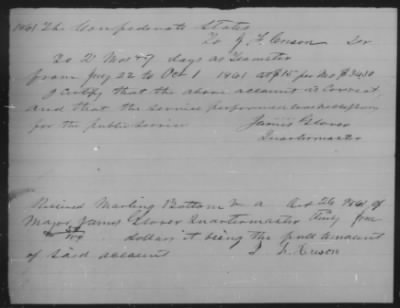 1861 The Confederate States
To J F Cruson Dr
To 2 Mos & 9 days as Teamster
from July 22 to Oct 1 1861 at $15 per Mo $34.50
I certify that the above account is correct,
and that the service performed was
for the public service James Glover
Quartermaster
Received Marling Bottom Va Oct 26 1861 of
Major James Glover Quartermaster Thirty four
& 50/100 dollars it being the full amount
of said account